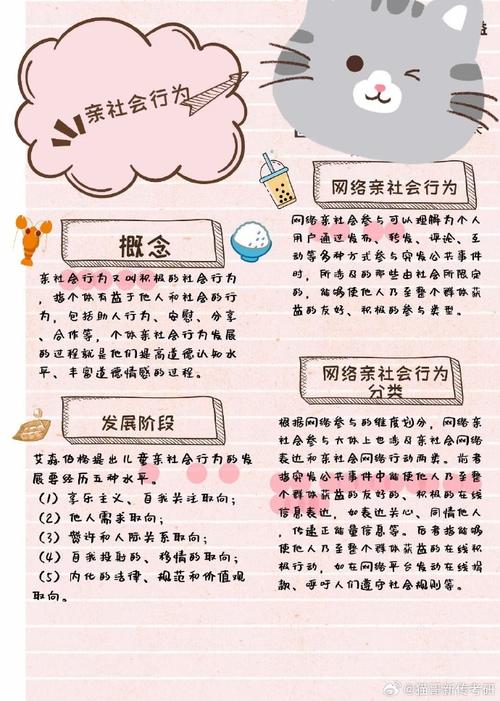 亲社会行为
概念
亲社会行为又叫积极的社会行为
，指个体有益于他人和社会的行
为，包括助人行为、安慰、分享
、合作等，个体亲社会行为发展
的过程就是他们提高道德认知水
平、丰富道德情感的过程。
发展阶段
艾森伯格提出儿童亲社会行为的发
展要经历五种水平。
（1）享乐主义、自我关注取向；
（2）他人需求取向；
（3）赞许和人际关系取向；
（4）自我投射的、移情的取向；
（5）内化的法律、规范和价值观
取向。
网络亲社会行为
网络亲社会参与可以理解为个人
用户通过发布、转发、评论、互
动等多种方式参与突发公共事件
时，所涉及的那些由社会所限定
的，能够使他人乃至整个群体获
益的友好、积极的参与类型。
网络亲社会行为
分类
根据网络参与的维度划分，网络亲
社会参与大体上也涉及亲社会网络
表达和亲社会网络行动两类。前者
指突发公共事件中能使他人乃至整
个群体获益的友好的、积极的在线
信息表达，如表达关心、同情他人
，传递正能量信息等。后者指能够
使他人乃至整个群体获益的在线积
极行动，如在网络平台发动在线捐
款、呼吁人们遵守社会规则等。
@猫哥新传考研